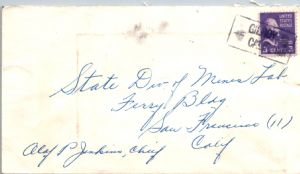 UNITED STATES
POSTAGE
State Div of Mines Lab
Ferry Bldg
San Francisco (11)
Calif
Olaf P. Jenkins, Chief